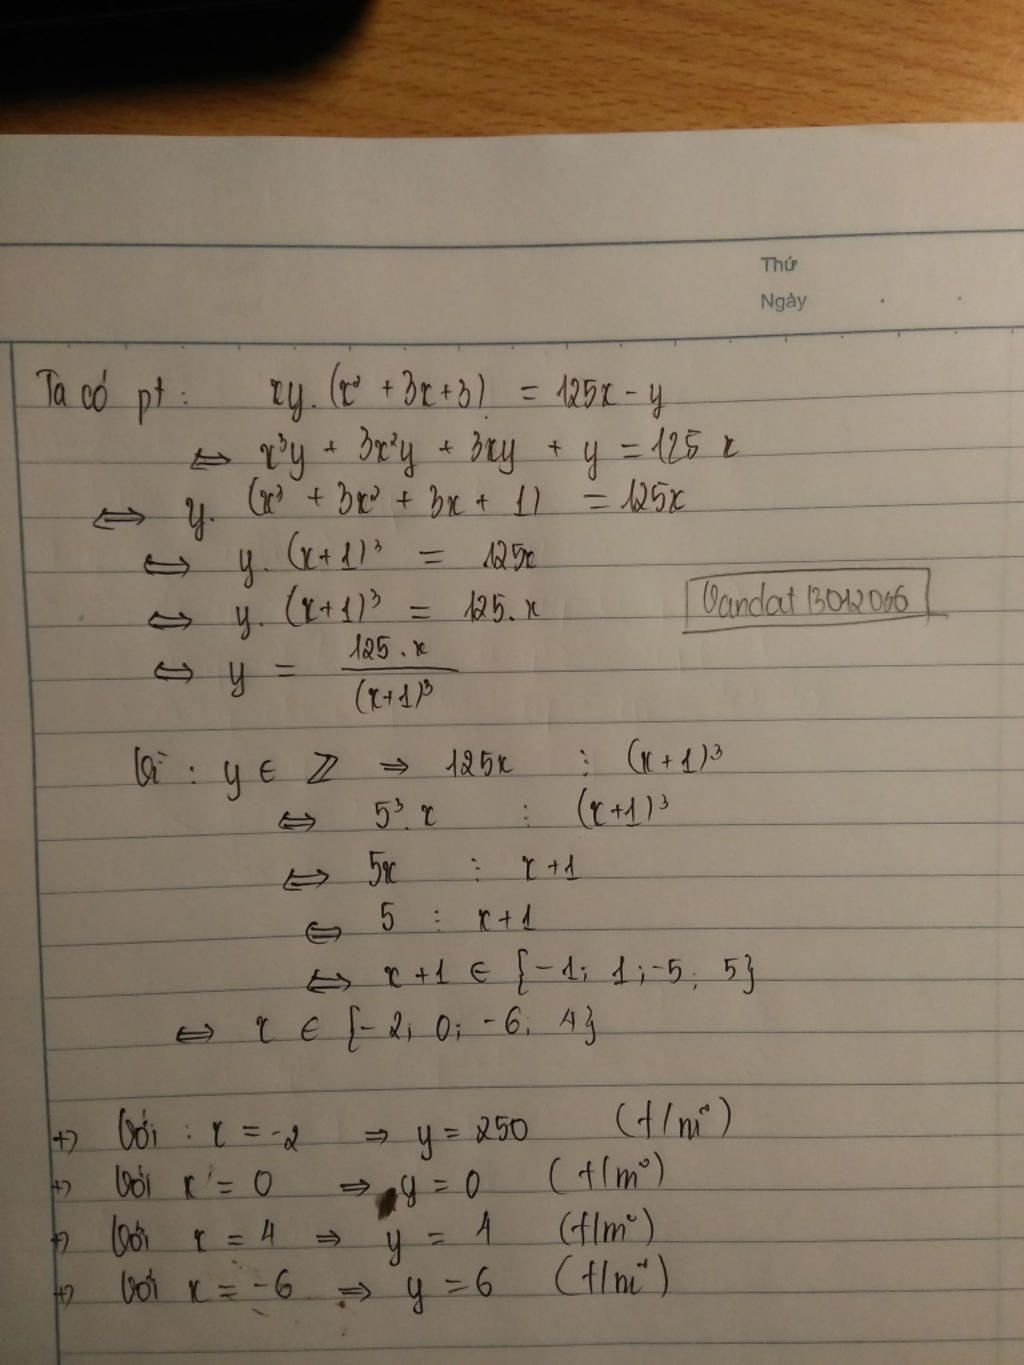 Thứ
Ngày
Ta có pt: xy.(x² + 3x + 3) = 125x - y
⇔ x³y + 3x²y + 3xy + y = 125 x
⇔ y. (x³ + 3x² + 3x + 1) = 125x
⇔ y. (x+1)³ = 125x
⇔ y. (x+1)³ = 125. x
Vandat13012006
⇔ y = 125.x / (x+1)³
Vì : y ∈ ℤ ⇒ 125x ⋮ (x+1)³
⇔ 5³. x ⋮ (x+1)³
⇔ 5x ⋮ x+1
⇔ 5 ⋮ x+1
⇔ x+1 ∈ {-1; 1; -5; 5}
⇔ x ∈ {-2; 0; -6; 4}
+) Với : x = -2 ⇒ y = 250 (t/m)
+) Với x = 0 ⇒ y = 0 (t/m)
+) Với x = 4 ⇒ y = 4 (t/m)
+) Với x = -6 ⇒ y = 6 (t/m)